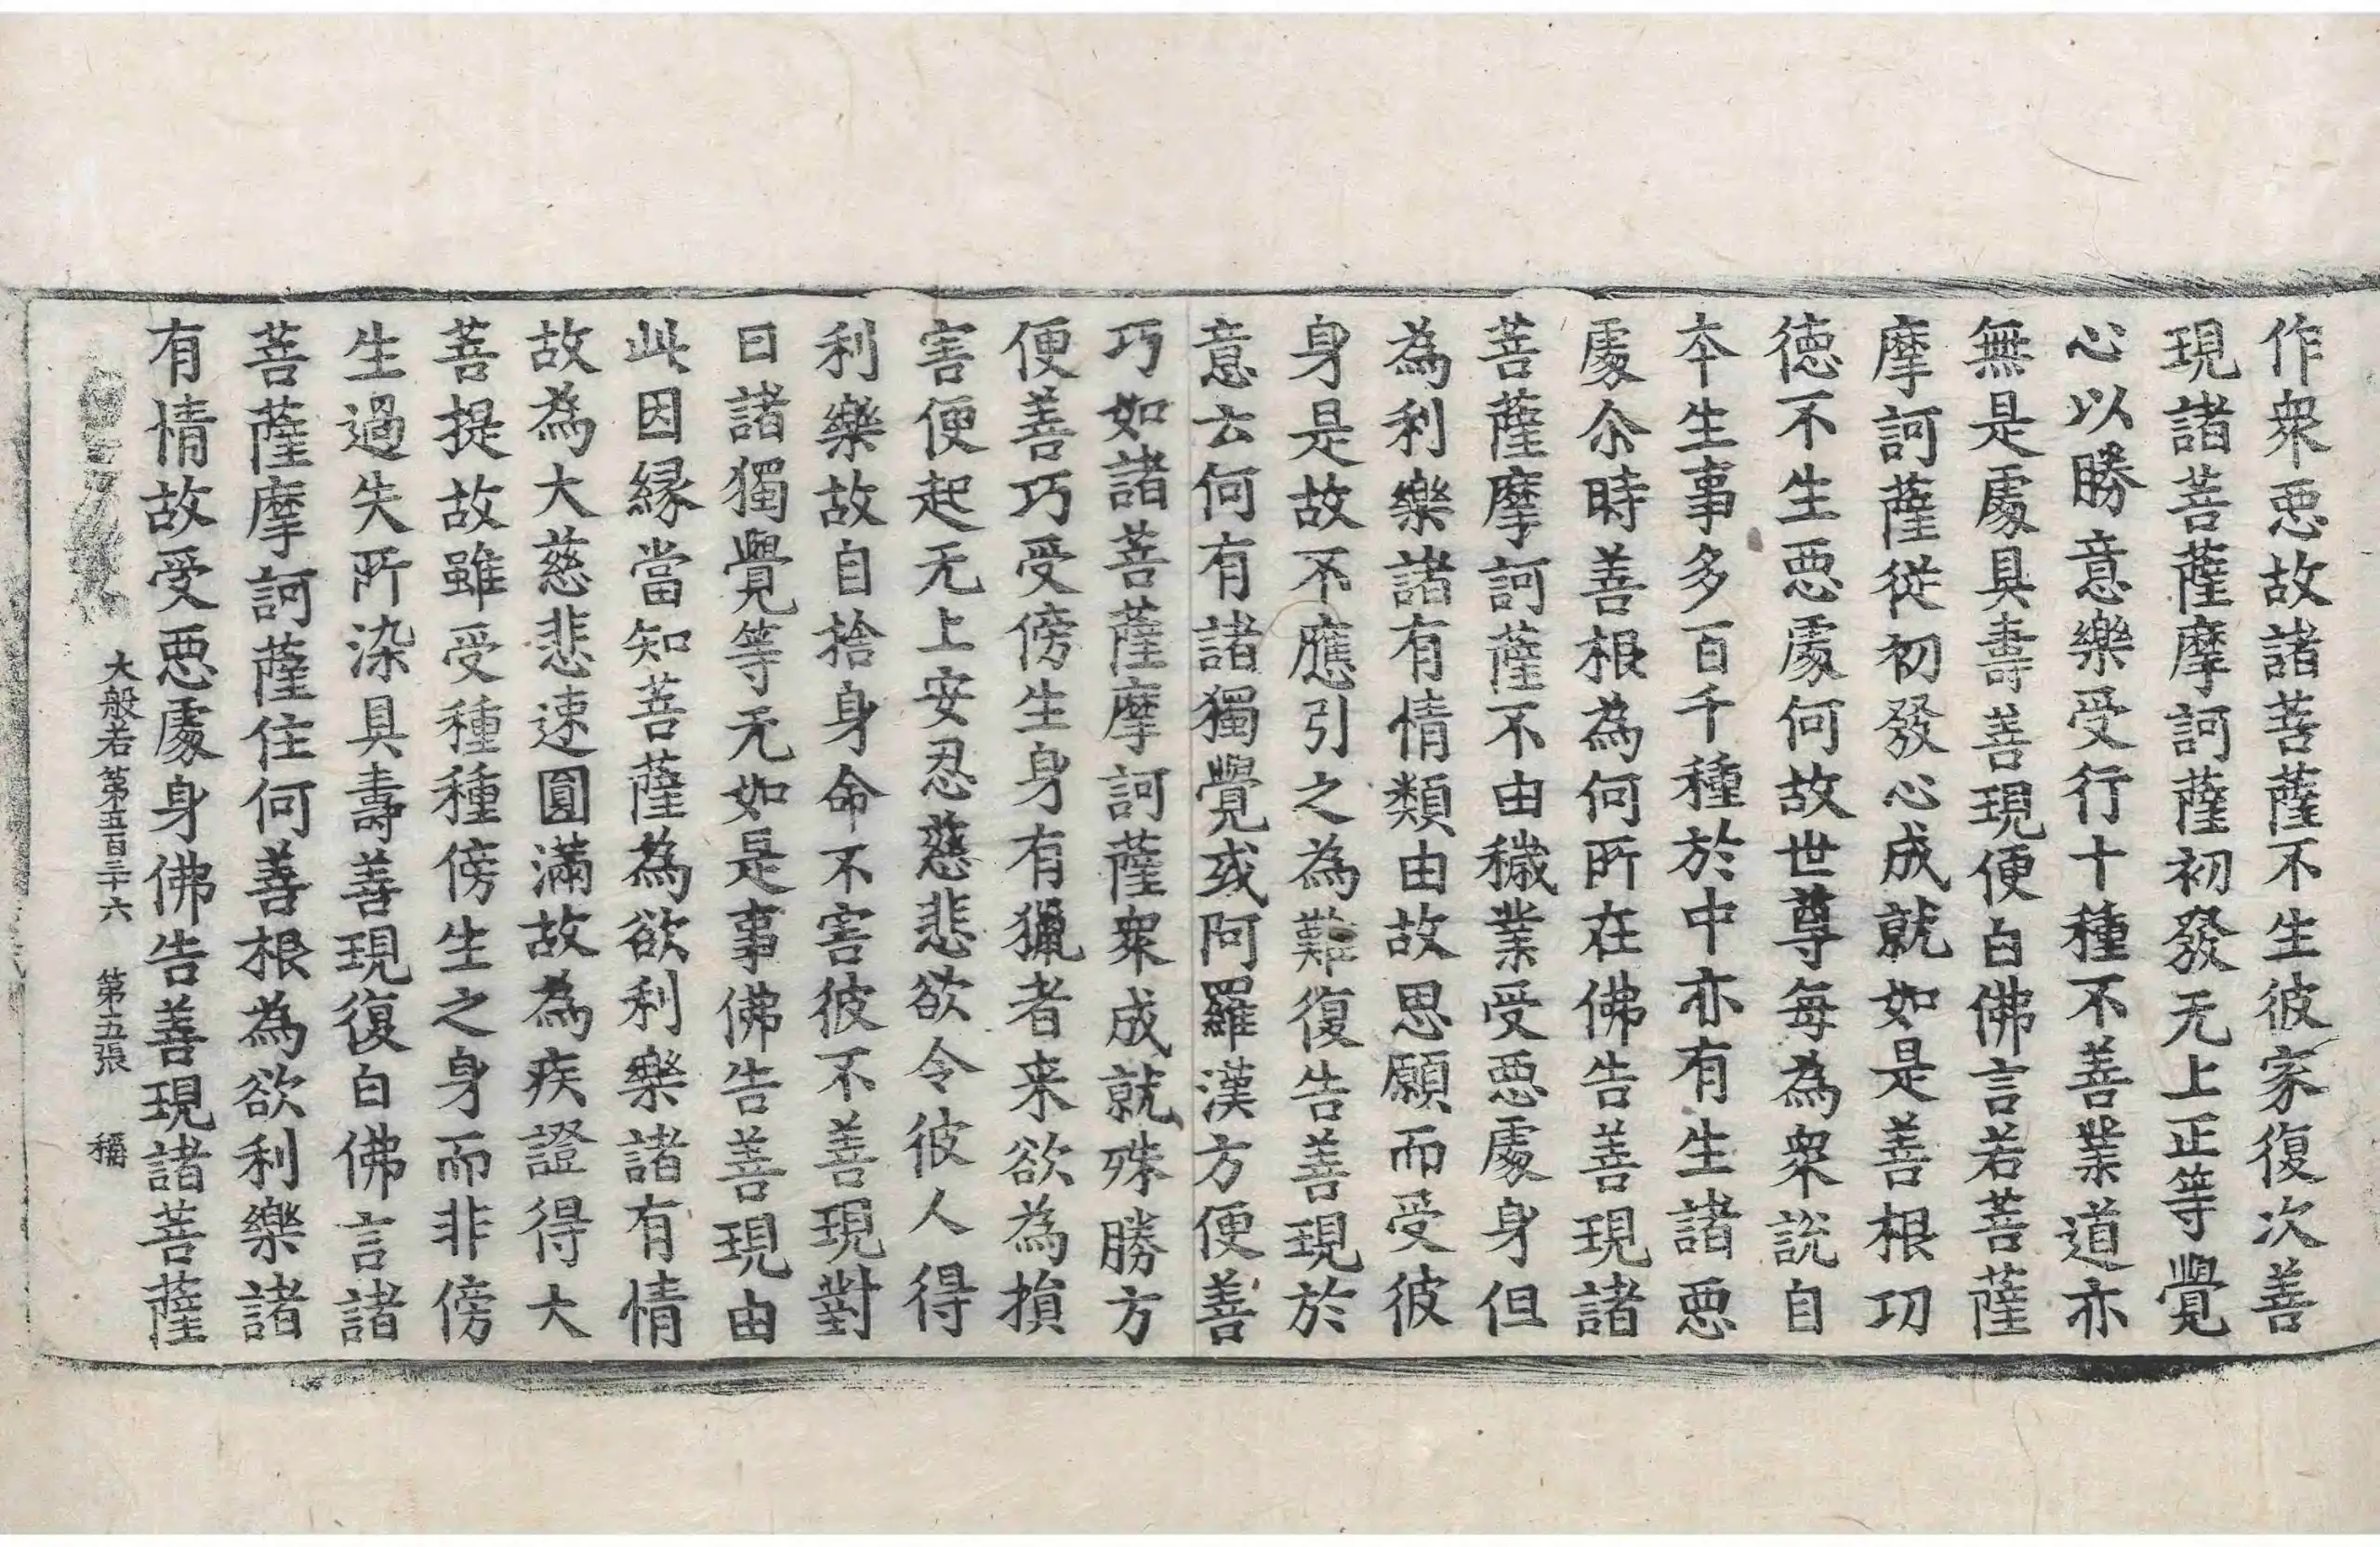 作衆惡故諸菩薩不生彼家復次善
現諸菩薩摩訶薩初發无上正等覺
心以勝意樂受行十種不善業道亦
無是處具壽善現便白佛言若菩薩
摩訶薩從初發心成就如是善根功
德不生惡處何故世尊每為衆說自
夲生事多百千種於中亦有生諸惡
處尒時善根為何所在佛告善現諸
菩薩摩訶薩不由穢業受惡處身但
為利樂諸有情類由故思願而受彼
身是故不應引之為難復告善現於
意云何有諸獨覺或阿羅漢方便善
巧如諸菩薩摩訶薩衆成就殊勝方
便善巧受傍生身有獵者来欲為損
害便起无上安忍慈悲欲令彼人得
利樂故自捨身命不害彼不善現對
曰諸獨覺等无如是事佛告善現由
此因縁當知菩薩為欲利樂諸有情
故為大慈悲速圓滿故為疾證得大
菩提故雖受種種傍生之身而非傍
生過失所染具壽善現復白佛言諸
菩薩摩訶薩住何善根為欲利樂諸
有情故受惡處身佛告善現諸菩薩
大般若第五百三十六 第五張 稱